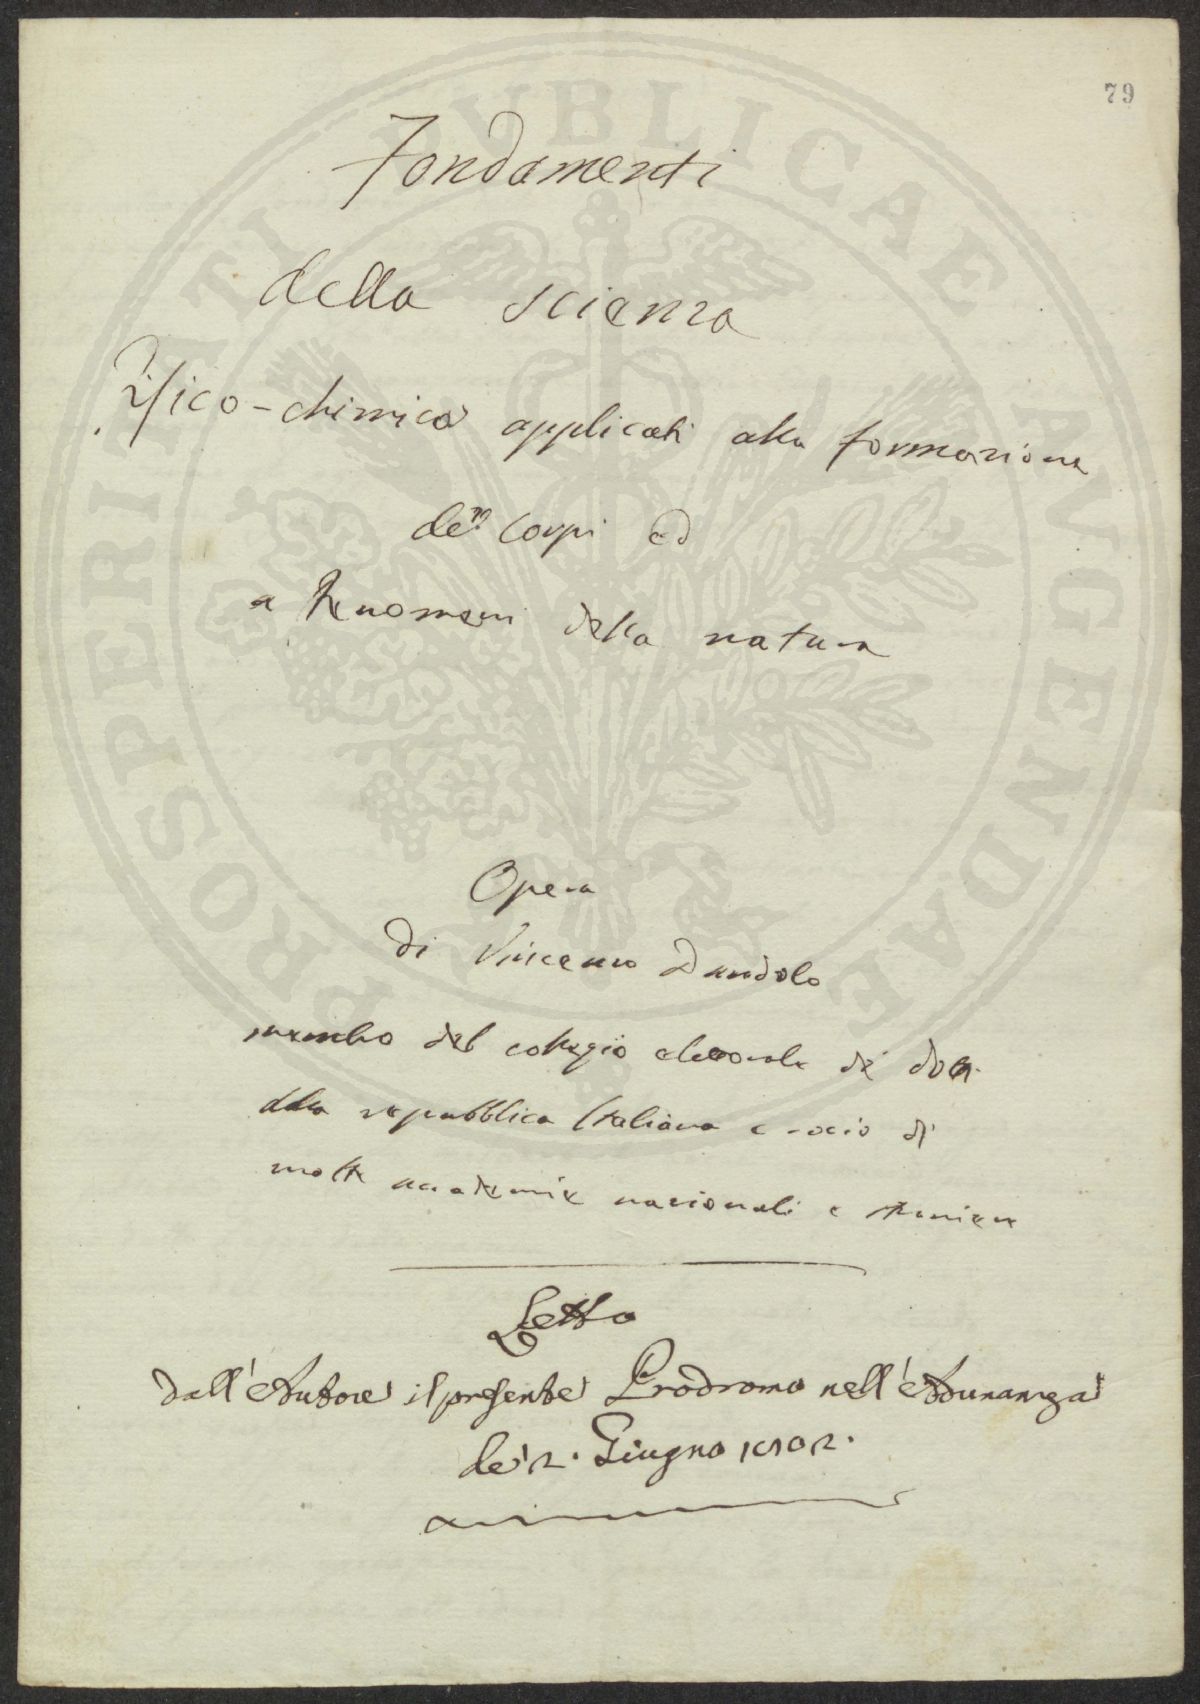 79
PROSPERITATI PVBLICAE AVGENDAE
Fondamenti
della scienza
Fisico-chimica applicati alla formazione
de' corpi ed
a fenomeni della natura
Opera
di Vincenzo Dandolo
membro del collegio elettorale de' dotti
della repubblica Italiana e socio di
molte accademie nazionali e straniere
Letto
dall'Autore il presente Prodromo nell'Adunanza
de' 2. Giugno 1802.